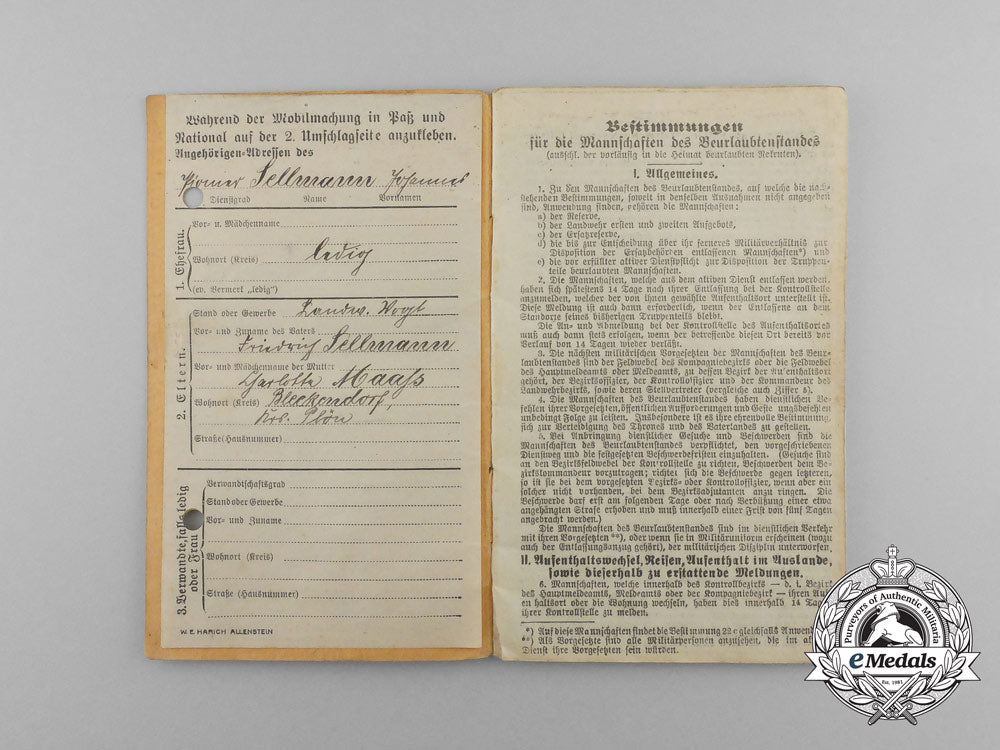 Während der Mobilmachung in Paß und
National auf der 2. Umschlagseite anzukleben.
Angehörigen-Adressen des
Pionier Sellmann Johannes
Dienstgrad Name Vornamen
1. Ehefrau.
Vor- u. Mädchenname
Wohnort (Kreis) ledig
(ev. Vermerk „ledig")
2. Eltern.
Stand oder Gewerbe Landw. Vogt
Vor- und Zuname des Vaters
Friedrich Sellmann
Vor- und Mädchenname der Mutter
Charlotte Maaß
Wohnort (Kreis) Bleekendorf,
Krs. Plön
Straße (Hausnummer)
3. Verwandte, falls ledig
oder Frau
Verwandtschaftsgrad
Stand oder Gewerbe
Vor- und Zuname
Wohnort (Kreis)
Straße (Hausnummer)
W. E. HARICH ALLENSTEIN
Bestimmungen
für die Mannschaften des Beurlaubtenstandes
(ausschl. der vorläufig in die Heimat beurlaubten Rekruten).
I. Allgemeines.
1. Zu den Mannschaften des Beurlaubtenstandes, auf welche die nach-
stehenden Bestimmungen, soweit in denselben Ausnahmen nicht angegeben
sind, Anwendung finden, gehören die Mannschaften:
a) der Reserve,
b) der Landwehr ersten und zweiten Aufgebots,
c) der Ersatzreserve,
d) die bis zur Entscheidung über ihr ferneres Militärverhältnis zur
Disposition der Ersatzbehörden entlassenen Mannschaften*) und
e) die vor erfüllter aktiver Dienstpflicht zur Disposition der Truppen-
teile beurlaubten Mannschaften.
2. Die Mannschaften, welche aus dem aktiven Dienst entlassen werden,
haben sich spätestens 14 Tage nach ihrer Entlassung bei der Kontrollstelle
anzumelden, welcher der von ihnen gewählte Aufenthaltsort unterstellt ist.
Diese Meldung ist auch dann erforderlich, wenn der Entlassene an dem
Standorte seines bisherigen Truppenteils bleibt.
Die An- und Abmeldung bei der Kontrollstelle des Aufenthaltsortes
muß auch dann stets erfolgen, wenn der betreffende diesen Ort bereits vor
Verlauf von 14 Tagen wieder verläßt.
3. Die nächsten militärischen Vorgesetzten der Mannschaften des Beur-
laubtenstandes sind der Feldwebel des Kompagniebezirks oder die Feldwebel
des Hauptmeldeamts oder Meldeamts, zu dessen Bezirk der Aufenthaltsort
gehört, der Bezirksoffizier, der Kontrolloffizier und der Kommandeur des
Landwehrbezirks, sowie deren Stellvertreter (vergleiche auch Ziffer 8).
4. Die Mannschaften des Beurlaubtenstandes haben dienstlichen Be-
fehlen ihrer Vorgesetzten, öffentlichen Aufforderungen und Gestellungsbefehlen
unbedingt Folge zu leisten. Insbesondere ist es ihre ehrenvolle Bestimmung,
sich zur Verteidigung des Thrones und des Vaterlandes zu gestellen.
5. Bei Anbringung dienstlicher Gesuche und Beschwerden sind die
Mannschaften des Beurlaubtenstandes verpflichtet, den vorgeschriebenen
Dienstweg und die festgesetzten Beschwerdefristen einzuhalten. (Gesuche sind
an den Bezirksfeldwebel der Kontrollstelle zu richten, Beschwerden dem Be-
zirkskommandeur vorzutragen; richtet sich die Beschwerde gegen letzteren,
so ist sie bei dem vorgesetzten Bezirks- oder Kontrolloffizier, wenn aber ein
solcher nicht vorhanden, bei dem Bezirksadjutanten anzubringen. Die
Beschwerde darf erst am folgenden Tage oder nach Verbüßung einer etwa
angehängten Strafe erhoben und muß innerhalb einer Frist von fünf Tagen
angebracht werden.)
Die Mannschaften des Beurlaubtenstandes sind im dienstlichen Verkehr
mit ihren Vorgesetzten**), oder wenn sie in Militäruniform erscheinen (wozu
auch der Entlassungsanzug gehört), der militärischen Disziplin unterworfen.
II. Aufenthaltswechsel, Reisen, Aufenthalt im Auslande,
sowie dieserhalb zu erstattende Meldungen.
6. Mannschaften, welche innerhalb des Kontrollbezirks — d. i. Bezirk
des Hauptmeldeamts, Meldeamts oder der Kompagniebezirk — ihren Auf-
enthaltsort oder die Wohnung wechseln, haben dies innerhalb 14 Tagen
ihrer Kontrollstelle zu melden.
*) Auf diese Mannschaften findet die Bestimmung 22e gleichfalls
**) Als Vorgesetzte sind alle Militärpersonen anzusehen, die im
Dienst ihre Vorgesetzten sein würden.
Purveyors of Authentic Militaria
eMedals
Est. 1981